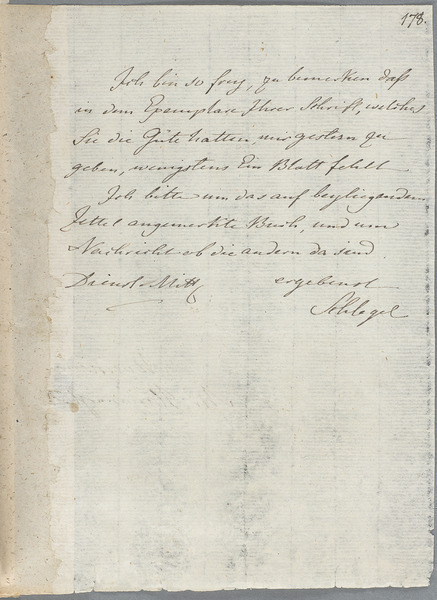 178.
Ich bin so frey, zu bemerken daß
in dem Exemplare Ihrer Schrift, welches
Sie die Güte hatten, mir gestern zu
geben, wenigstens Ein Blatt fehlt
Ich bitte um das auf beyliegendem
Zettel angemerkte Buch, und um
Nachricht ob die andern da sind.
Dienst. Mitt ergebenst
Schlegel